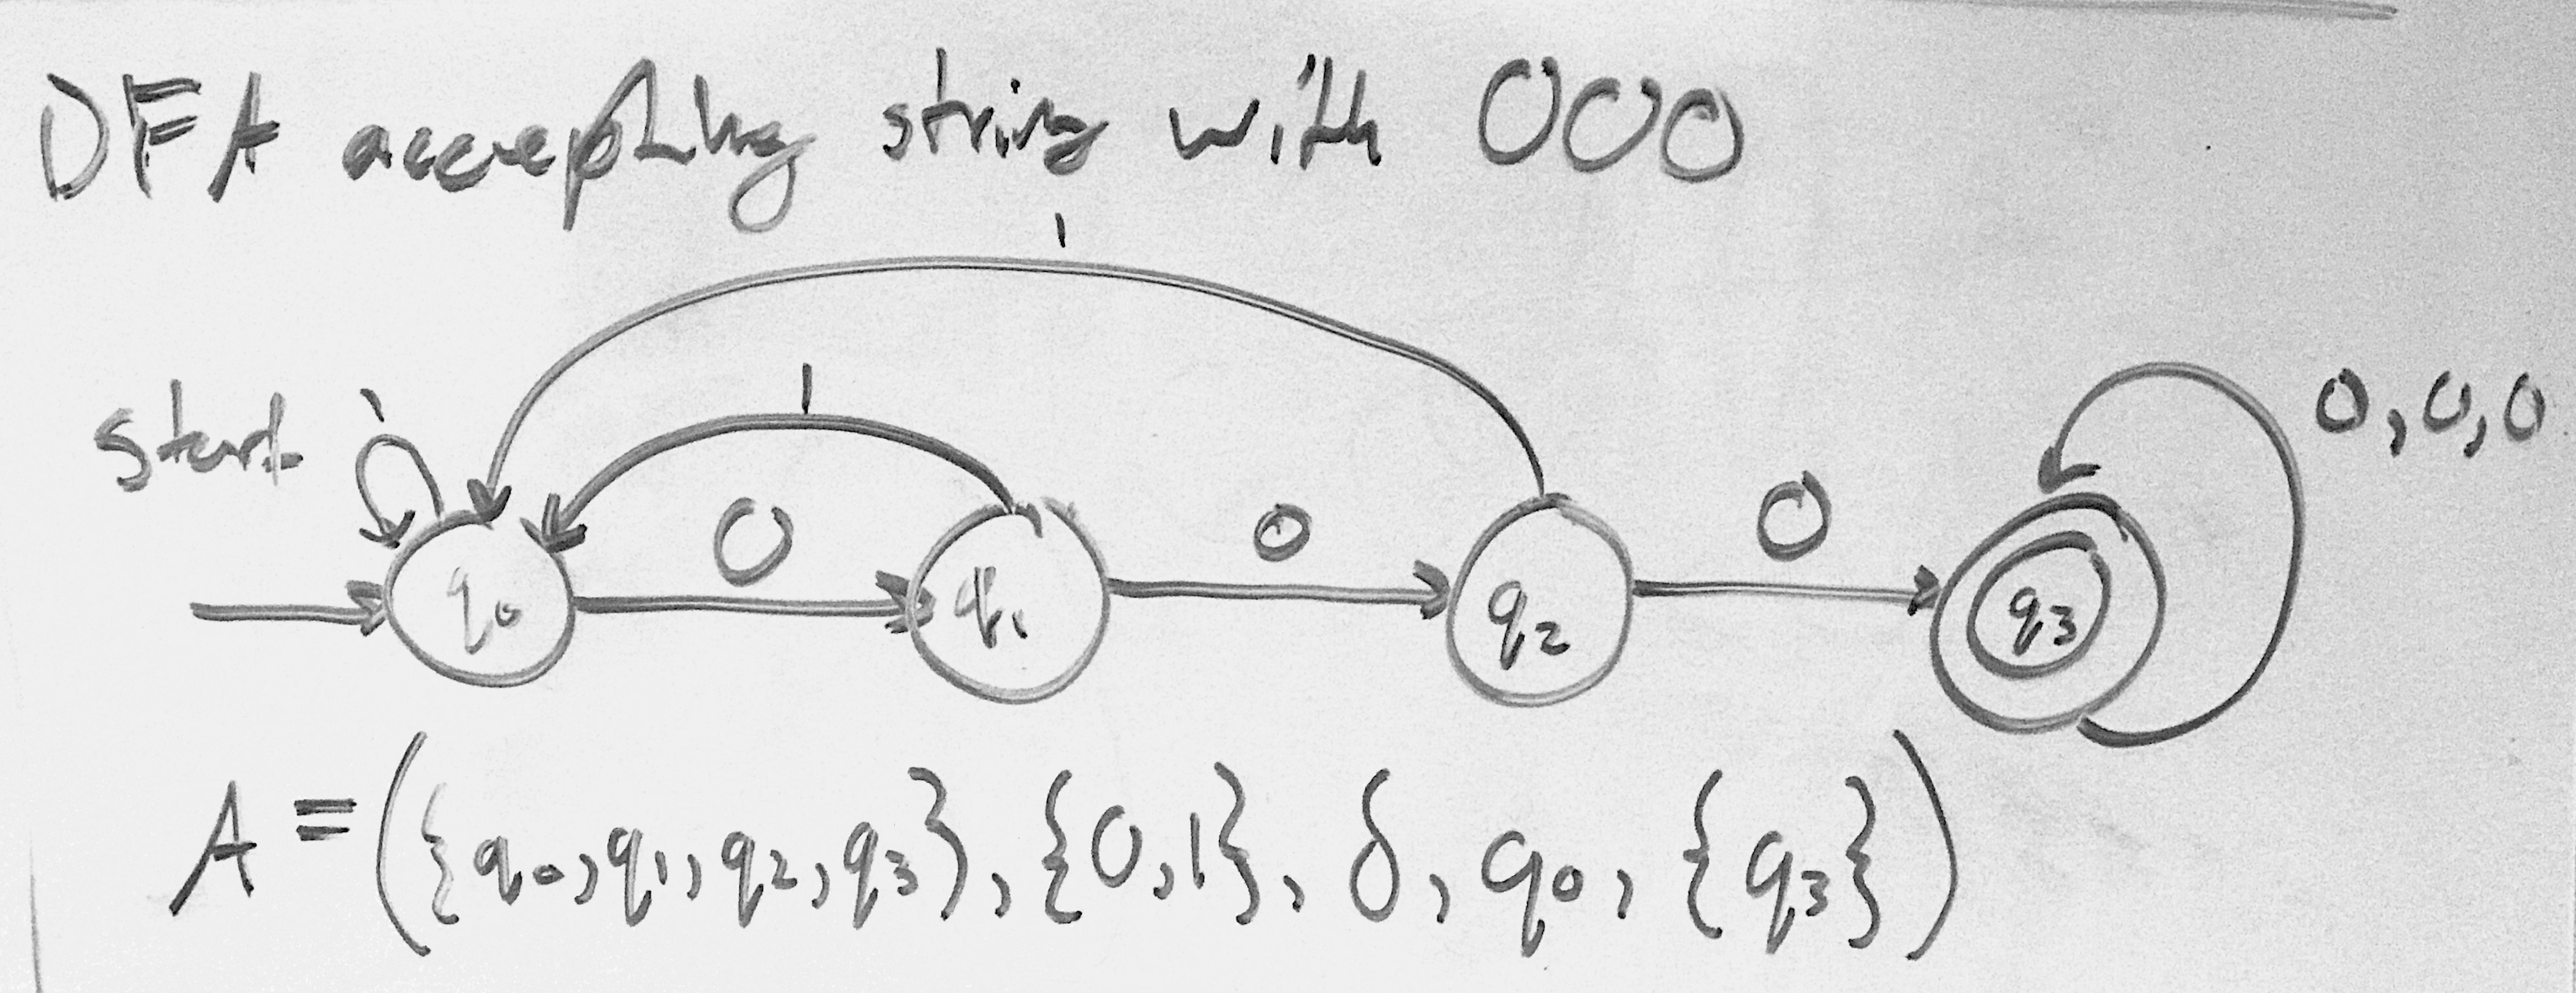 DFA accepting string with 000
1
1
start 1 0 0 0 0,0,0
q₀ q₁ q₂ q₃
A = ({q₀,q₁,q₂,q₃}, {0,1}, δ, q₀, {q₃})